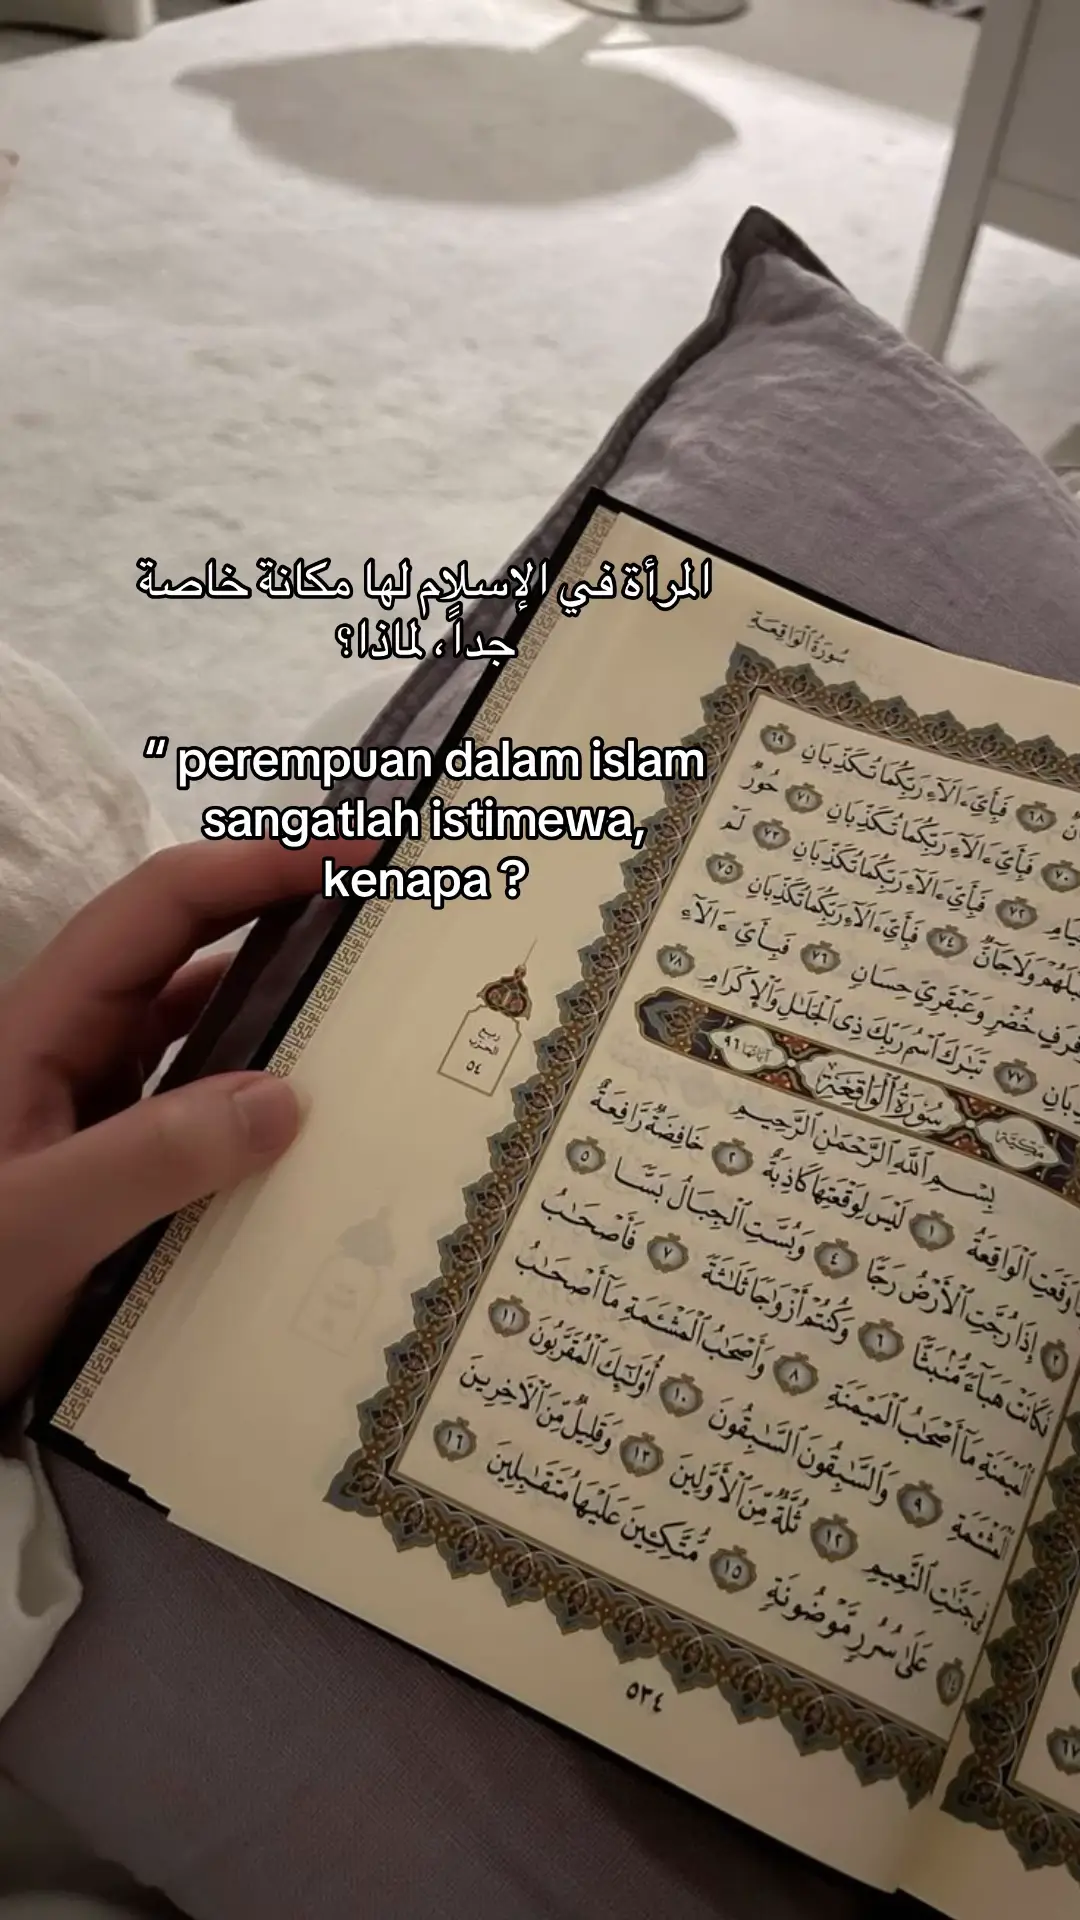 المرأة في الإسلام لها مكانة خاصة
جداً، لماذا؟
“ perempuan dalam islam
sangatlah istimewa,
kenapa ?
سُورَةُ الْوَاقِعَةِ
فَبِأَيِّ ءَالَآءِ رَبِّكُمَا تُكَذِّبَانِ ٦٩
٦٨
فَبِأَيِّ ءَالَآءِ رَبِّكُمَا تُكَذِّبَانِ ٧١ حُورٌ
٧٠
فَبِأَيِّ ءَالَآءِ رَبِّكُمَا تُكَذِّبَانِ ٧٣ لَمْ
٧٢
وَلَا جَآنٌّ ٧٤ فَبِأَيِّ ءَالَآءِ رَبِّكُمَا تُكَذِّبَانِ ٧٥
خُضْرٍ وَعَبْقَرِيٍّ حِسَانٍ ٧٦ فَبِأَيِّ ءَالَآءِ
٧٧ تَبَٰرَكَ ٱسْمُ رَبِّكَ ذِى ٱلْجَلَٰلِ وَٱلْإِكْرَامِ ٧٨
مَكِّيَّة سُورَةُ الْوَاقِعَةِ آيَاتُهَا ٩٦
بِسْمِ ٱللَّهِ ٱلرَّحْمَٰنِ ٱلرَّحِيمِ
وَقَعَتِ ٱلْوَاقِعَةُ ١ لَيْسَ لِوَقْعَتِهَا كَاذِبَةٌ ٢ خَافِضَةٌ رَّافِعَةٌ
٣ إِذَا رُجَّتِ ٱلْأَرْضُ رَجًّا ٤ وَبُسَّتِ ٱلْجِبَالُ بَسًّا ٥
فَكَانَتْ هَبَآءً مُّنۢبَثًّا ٦ وَكُنتُمْ أَزْوَٰجًا ثَلَٰثَةً ٧ فَأَصْحَٰبُ
ٱلْمَيْمَنَةِ مَآ أَصْحَٰبُ ٱلْمَيْمَنَةِ ٨ وَأَصْحَٰبُ ٱلْمَشْـَٔمَةِ مَآ أَصْحَٰبُ
ٱلْمَشْـَٔمَةِ ٩ وَٱلسَّٰبِقُونَ ٱلسَّٰبِقُونَ ١٠ أُو۟لَٰٓئِكَ ٱلْمُقَرَّبُونَ ١١
فِى جَنَّٰتِ ٱلنَّعِيمِ ١٢ ثُلَّةٌ مِّنَ ٱلْأَوَّلِينَ ١٣ وَقَلِيلٌ مِّنَ ٱلْءَاخِرِينَ
١٤ عَلَىٰ سُرُرٍ مَّوْضُونَةٍ ١٥ مُّتَّكِـِٔينَ عَلَيْهَا مُتَقَٰبِلِينَ ١٦
ربع
الحزب
٥٤
٥٣٤